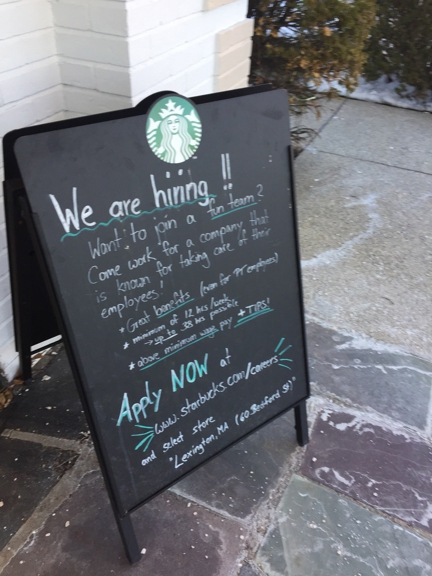 We are hiring !!
Want to join a fun team?
Come work for a company that
is known for taking care of their
employees!
* Great benefits (even for PT employees)
* minimum of 12 hrs/week
> up to 38 hrs possible
* above minimum wage pay + TIPS!
Apply NOW at
www.starbucks.com/careers
and select store
"Lexington, MA (60 Bedford St)"